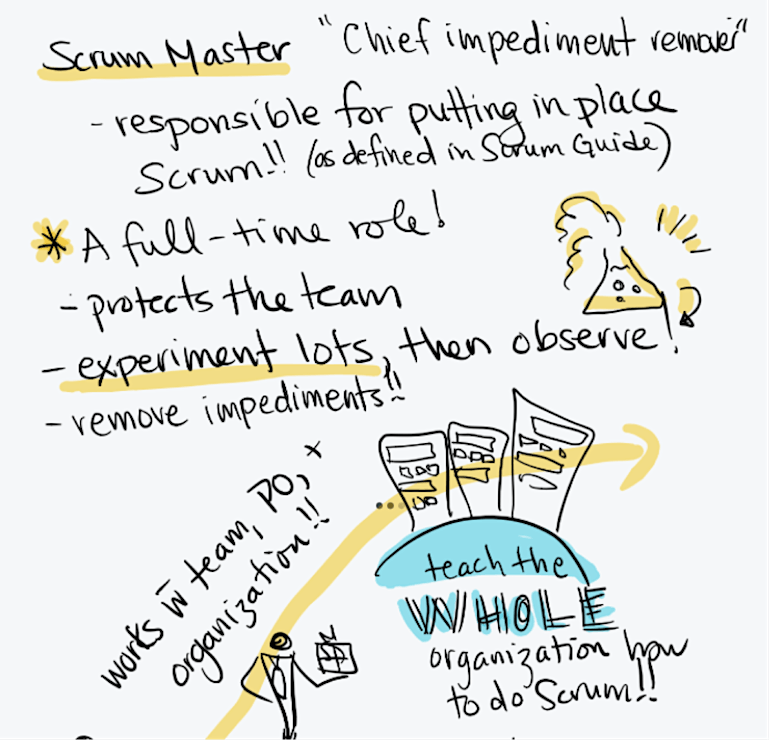 Scrum Master "Chief impediment remover"
- responsible for putting in place
Scrum!! (as defined in Scrum Guide)
* A full-time role!
- protects the team
- experiment lots, then observe!
- remove impediments!!
works w team, PO, +
organization!!
teach the
WHOLE
organization how
to do Scrum!!